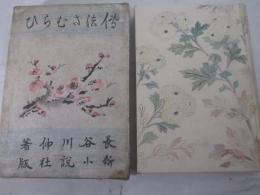 傳法さむらひ
長谷川伸著
新小説社版